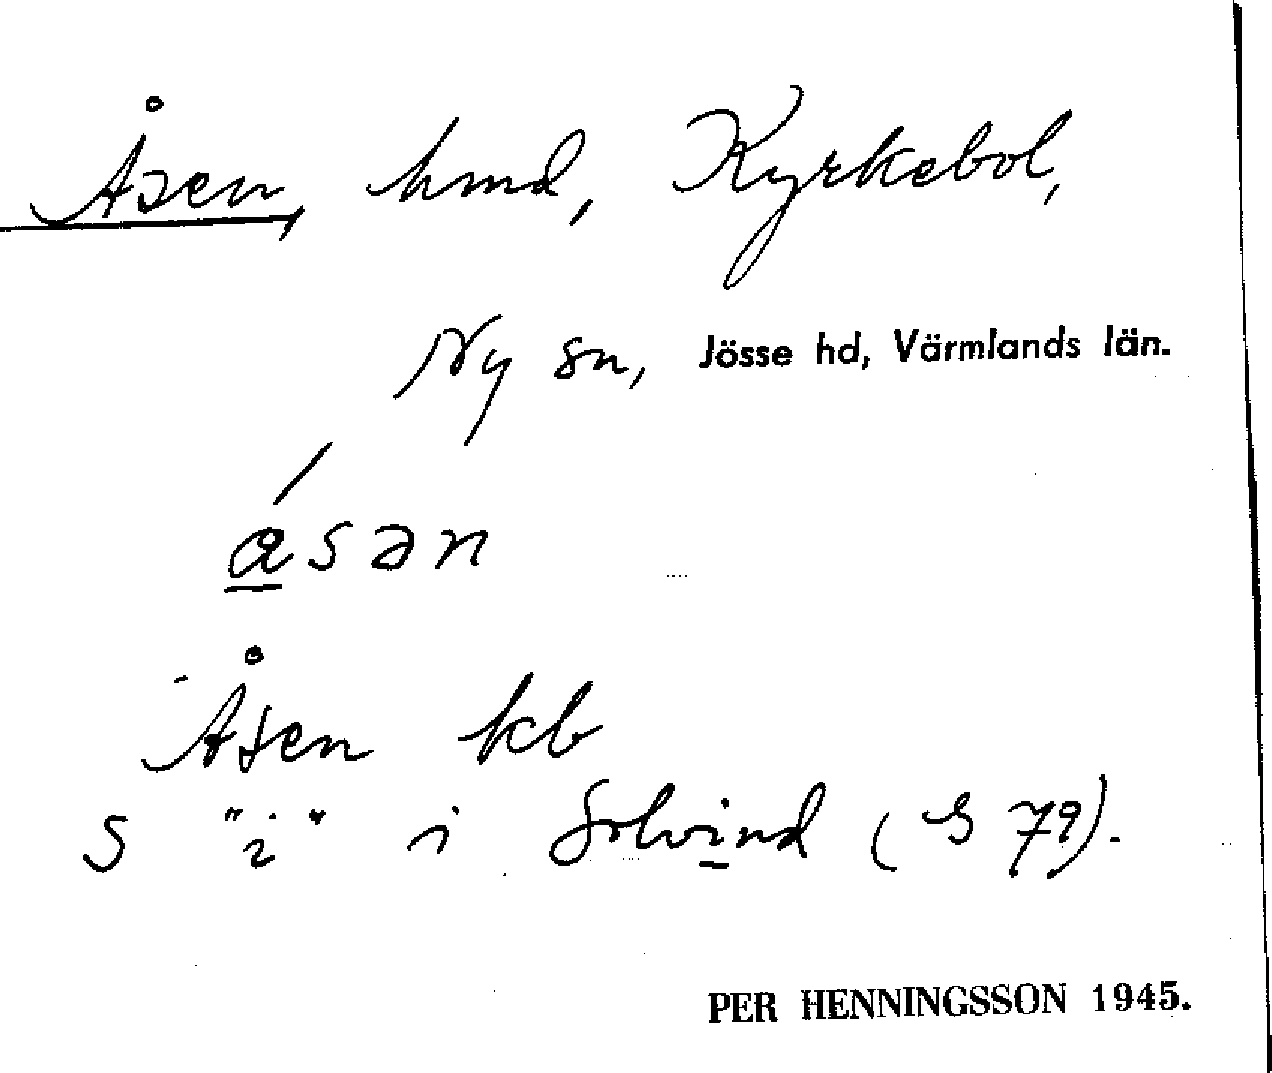 Åsen, hmd, Kyrkebol,
Ny sn, Jösse hd, Värmlands län.
åsən
Åsen kb
S "i" i Solvind (S 79).
PER HENNINGSSON 1945.